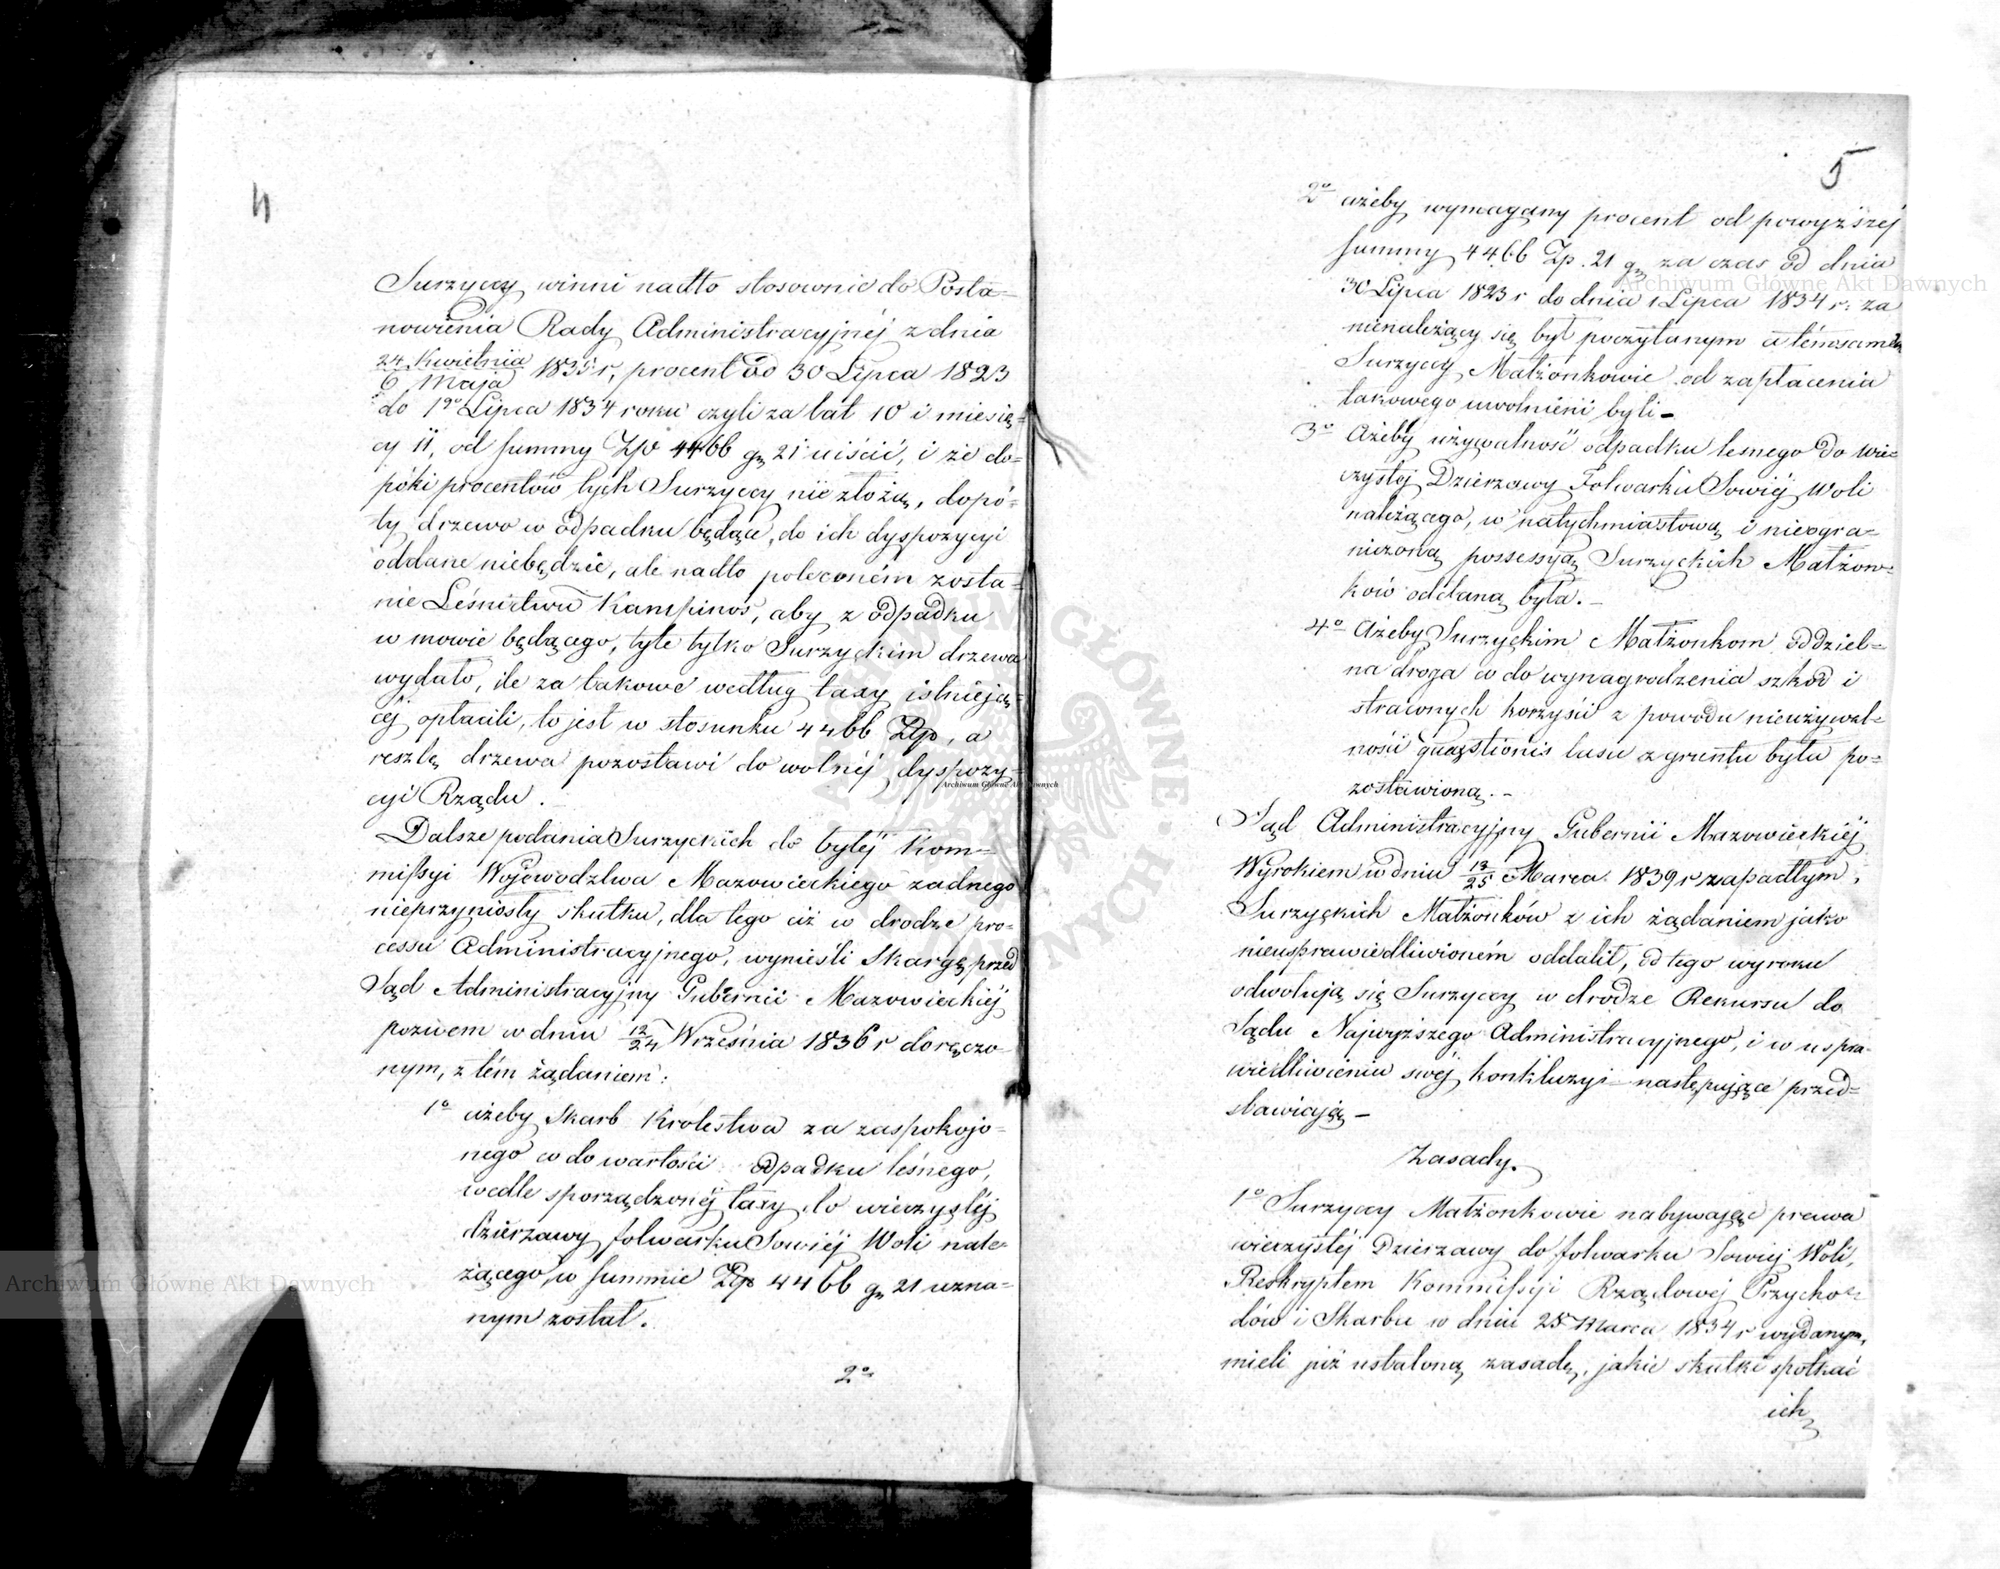 4
Surzyccy winni nadto stosownie do Posta=
nowienia Rady Administracyjnéj z dnia
24 Kwietnia
6 Maja 1835 r, procent od 30 Lipca 1823
do 1go Lipca 1834 roku czyli za lat 10 i miesię=
cy 11, od summy Zp 4466 gr 21 uiścić, i że do=
póki procentów tych Surzyccy nie złożą, dopó=
ty drzewo w odpadku będące, do ich dyspozycyi
oddane niebędzie, ale nadto poleconém zosta=
nie Leśnictwu Kampinos, aby z odpadku
w mowie będącego, tyle tylko Surzyckim drzewa
wydało, ile za takowe według taxy istnieją=
céj opłacili, to jest w stosunku 4466 Zp, a
resztę drzewa pozostawi do wolnéj dyspozy=
cyi Rządu.
Dalsze podania Surzyckich do byłéj Kom=
missyi Województwa Mazowieckiego żadnego
nieprzyniosły skutku, dla tego też w drodze pro=
cessu Administracyjnego, wynieśli Skargę przed
Sąd Administracyjny Gubernii Mazowieckiéj
pozwem w dniu 12/24 Września 1836 r doręczo=
nym, z tém żądaniem:
1o ażeby Skarb Królestwa za zaspokojo=
nego co do wartości odpadku leśnego,
wedle sporządzonéj taxy do wieczystéj
dzierzawy folwarku Sowiéj Woli nale=
żącego, w summie Zp 4466 gr 21 uzna=
nym został.
2o
5
2o ażeby wymagany procent od powyższéj
summy 4466 Zp. 21 gr za czas od dnia
30 Lipca 1823 r do dnia 1 Lipca 1834 r: za
nienależący się był poczytanym a témsamém
Surzyccy Małżonkowie od zapłacenia
takowego uwolnieni byli –
3o Ażeby używalność odpadku lesnego do wie=
czystéj Dzierzawy Folwarku Sowiéj Woli
należącego, w natychmiastową i nieogra=
niczoną possessyą Surzyckich Małżon=
ków oddaną była. –
4o Ażeby Surzyckim Małżonkom oddziel=
na droga co do wynagrodzenia szkód i
straconych korzyści z powodu nieużywal=
ności quaestionis lasu z gruntu była po=
zostawioną. –
Sąd Administracyjny Gubernii Mazowieckiéj
Wyrokiem w dniu 13/25 Marca 1839 r zapadłym,
Surzyckich Małżonków z ich żądaniem jako
nieusprawiedliwioném oddalił, od tego wyroku
odwołują się Surzyccy w drodze Rekursu do
Sądu Najwyższego Administracyjnego, i w uspra=
wiedliwieniu swéj konkluzyi następujące przed=
stawiają –
Zasady.
1o Surzyccy Małżonkowie nabywając prawa
wieczystéj Dzierzawy do folwarku Sowiéj Woli,
Reskryptem Kommissyi Rządowéj Przycho=
dów i Skarbu w dniu 25 Marca 1834 r wydanym,
mieli już ustaloną zasadę, jakie skutki spotkać
ich
Archiwum Główne Akt Dawnych
Archiwum Główne Akt Dawnych
Archiwum Główne Akt Dawnych